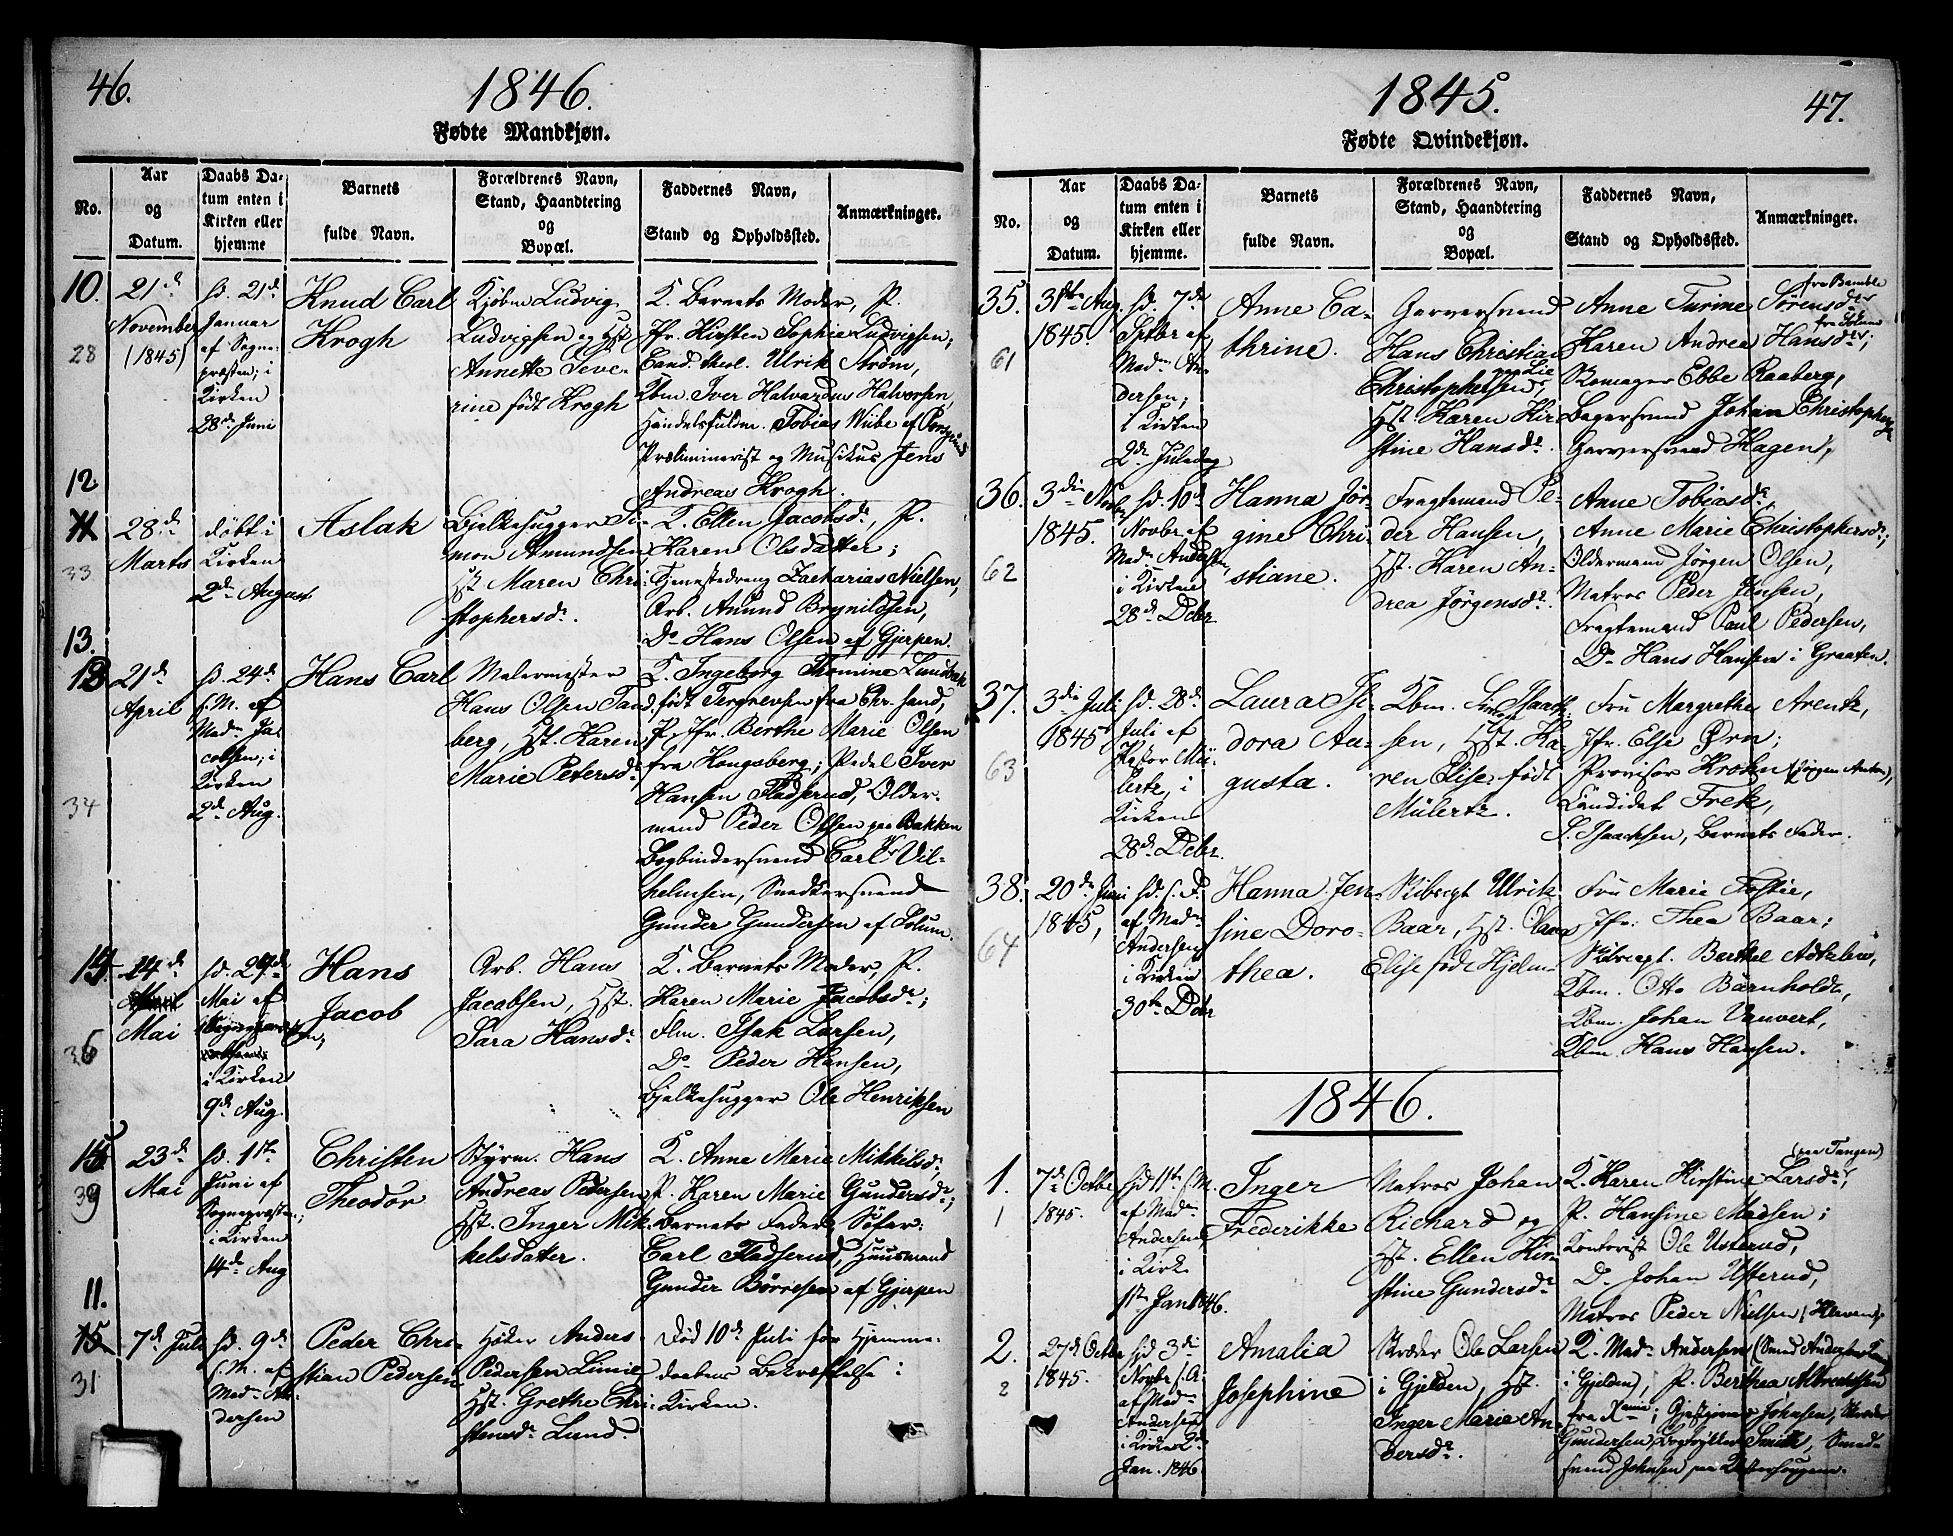 46.
1846.
Fødte Mandkjøn.
No.
Aar
og
Datum.
Daabs Da-
tum enten i
Kirken eller
hjemme
Barnets
fulde Navn.
Forældrenes Navn,
Stand, Haandtering
og
Bopæl.
Faddernes Navn,
Stand og Opholdssted.
Anmærkninger.
10.
28
21de
November
(1845)
hd. 21de
Januar
af Sogne-
præsten; i
Kirken
28de Juni
Knud Carl
Krogh
Kjøbm Ludvig
Ludvigsen og Hst
Annette Seve-
rine født Krogh
K. Barnets Moder, P.
Jfr. Kirsten Sophie Ludvigsen;
Cand. theol. Ulrik Strøm,
Kbm. Iver Halvardus Halvorsen,
Handelsfuldm. Tobias Wibe af Porsgrund
Præliminarist og Musikus Jens
Andreas Krogh.
12
11
33
28de
Marts
døbt i
Kirken
2de August
Aslak
Bjelkehugger Si-
mon Amundsen
Hst Maren Chri-
stophersdr.
K. Ellen Jacobsdr, P.
Karen Olsdatter;
Tjenestedreng Zacharias Nielsen,
Arb. Anund Brynildsen,
Do Hans Olsen af Gjerpen.
13.
34
21de
April
hd. 24de
s.M. af
Madm Ja-
cobsen; i
Kirken
2de Aug.
Hans Carl
Malermester
Hans Olsen Sand-
berg, Hst. Karen
Marie Petersdr
K. Ingeborg Thomine Lundbek
født Tergrevsen fra Chr.sand,
P. Jfr. Berthe Marie Olsen
fra Kongsberg; Pedel Iver
Hansen Fladserud, Older-
mand Peder Olsen paa Bakken
Bogbindersvend Carl Vil-
helmsen, Snedkersvend
Gunder Gundersen af Solum.
36
14de
Mai
hd.
Mai af
i Kirken
9de Aug.
Hans
Jacob
Arb. Hans
Jacobsen, Hst.
Sara Hansdr
K. Barnets Moder, P.
Karen Marie Jacobsdr;
Flm. Isak Larsen,
Do Peder Hansen,
Bjelkehugger Ole Henriksen
39
23de
Mai
hd. 1ste
Juni af
Sognepræsten;
i Kirken
14de Aug
Christen
Theodor
Styrm. Hans
Andreas Pedersen
Hst. Inger Mik-
kelsdatter.
K. Anne Marie Mikkelsdr,
P. Karen Marie Gundersdr;
Barnets Fader, Søfar.
Carl Fladserud, Huusmand
Gunder Børresen af Gjerpen
11.
15
31
7de Juli
hd. 9de
s.M. af
Madm An-
dersen
Peder Chri-
stian Pedersen
Høker Anders
Pedersen Limie
Hst. Grethe Chri-
stensdr Lund.
Død 10de Juli før Hjemme-
daabens Bekræftelse i
Kirken.
1845.
47.
Fødte Qvindekjøn.
No.
Aar
og
Datum.
Daabs Da-
tum enten i
Kirken eller
hjemme.
Barnets
fulde Navn.
Forældrenes Navn,
Stand, Haandtering
og
Bopæl.
Faddernes Navn,
Stand og Opholdssted.
Anmærkninger.
35.
61
31te Aug
1845.
hd. 7de
Sptbr af
Madm An-
dersen;
i Kirken
2de Juledag
Anne Ca-
thrine.
Garversvend
Hans Christian
Christophersen,
Hst. Karen Kir-
stine Hansdr.
Anne Turine Sørensdr fra Bamble
Karen Andrea Hansdr; fra Solum
Remager Ebbe Raaberg,
Bagersvend Johan Christophersen
Garversvend Hagen,
36.
62
3die Novbr
1845.
hd. 10de
Novbr af
Madm Andersen,
i Kirken
28de Decbr
Hanna Jør-
gine Chri-
stiane.
Fragtemand Pe-
der Hansen,
Hst. Karen An-
drea Jørgensdr.
Anne Tobiasdr,
Anne Marie Christophersdr;
Oldermand Jørgen Olsen,
Matros Peder Jensen,
Fragtemand Paul Pedersen,
Do Hans Hansen i Graaten.
37.
63
3die Juli
1845
hd. 28de
Juli af
Pastor Mü-
lertz, i
Kirken
28de Decbr.
Laura Isi-
dora Au-
gusta.
Kbm. Isaach-
sen, Hst. Ka-
ren Elise født
Mülertz.
Fru Margrethe Arentz,
Jfr. Else Ørn;
Provisor Krohn (Jørgen Anton),
Candidat Frek,
S. Isaachsen, Barnets Fader.
38.
64
20de Juni
1845,
hd. s.D.
af Madm
Andersen
i Kirken
30te Decbr
Hanna Jen-
sine Doro-
thea.
Skibscapt Ulrik
Baar, Hst.
Elise født Hjelm
Fru Marie
Jfr. Thea Baar;
Skibscapt. Barthel
Kbm. Otto Bärnholdt,
Kbm. Johan Vauvert,
Kbm. Hans Hansen.
1846.
1.
1
7de Octbr
1845.
hd 11te s.M.
af Madm
Andersen,
i Kirk.
1ste Jan 1846.
Inger
Frederikke
Matros Johan
Richard og
Hst. Ellen Kir-
stine Gundersdr
(paa Tangen)
K. Karen Kirstine Larsdr,
P. Hansine Madsen;
Kontorist Ole Usterud,
Do Johan Usterud,
Matros Peder Nielsen
2.
2
27de Octbr
1845.
hd 3die
Novbr s.A.
af Madm
Andersen
i Kirken 2de
Jan. 1846
Amalia
Josephine
Skræder Ole Larsen
i Gjelden, Hst.
Inger Marie An-
dersdr.
K. Madm Andersen (Smed Andersens
i Gjelden), P. Berthea Albrechtsen
Gjæstgiver Johnsen,
Gundersen, Bogtrykker Smith, Smed-
svend Johnsen paa